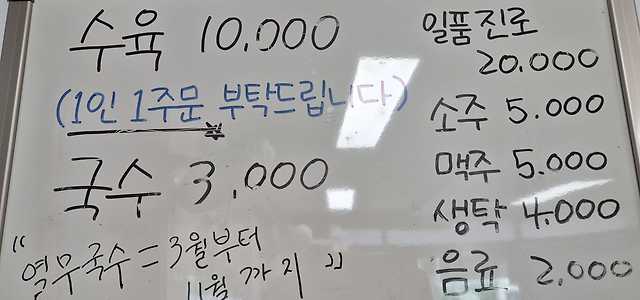 수육 10.000
(1인 1주문 부탁드립니다)
국수 3.000
"열무국수 = 3월부터
11월 까지"
일품진로
20.000
소주 5.000
맥주 5.000
생탁 4.000
음료 2.000